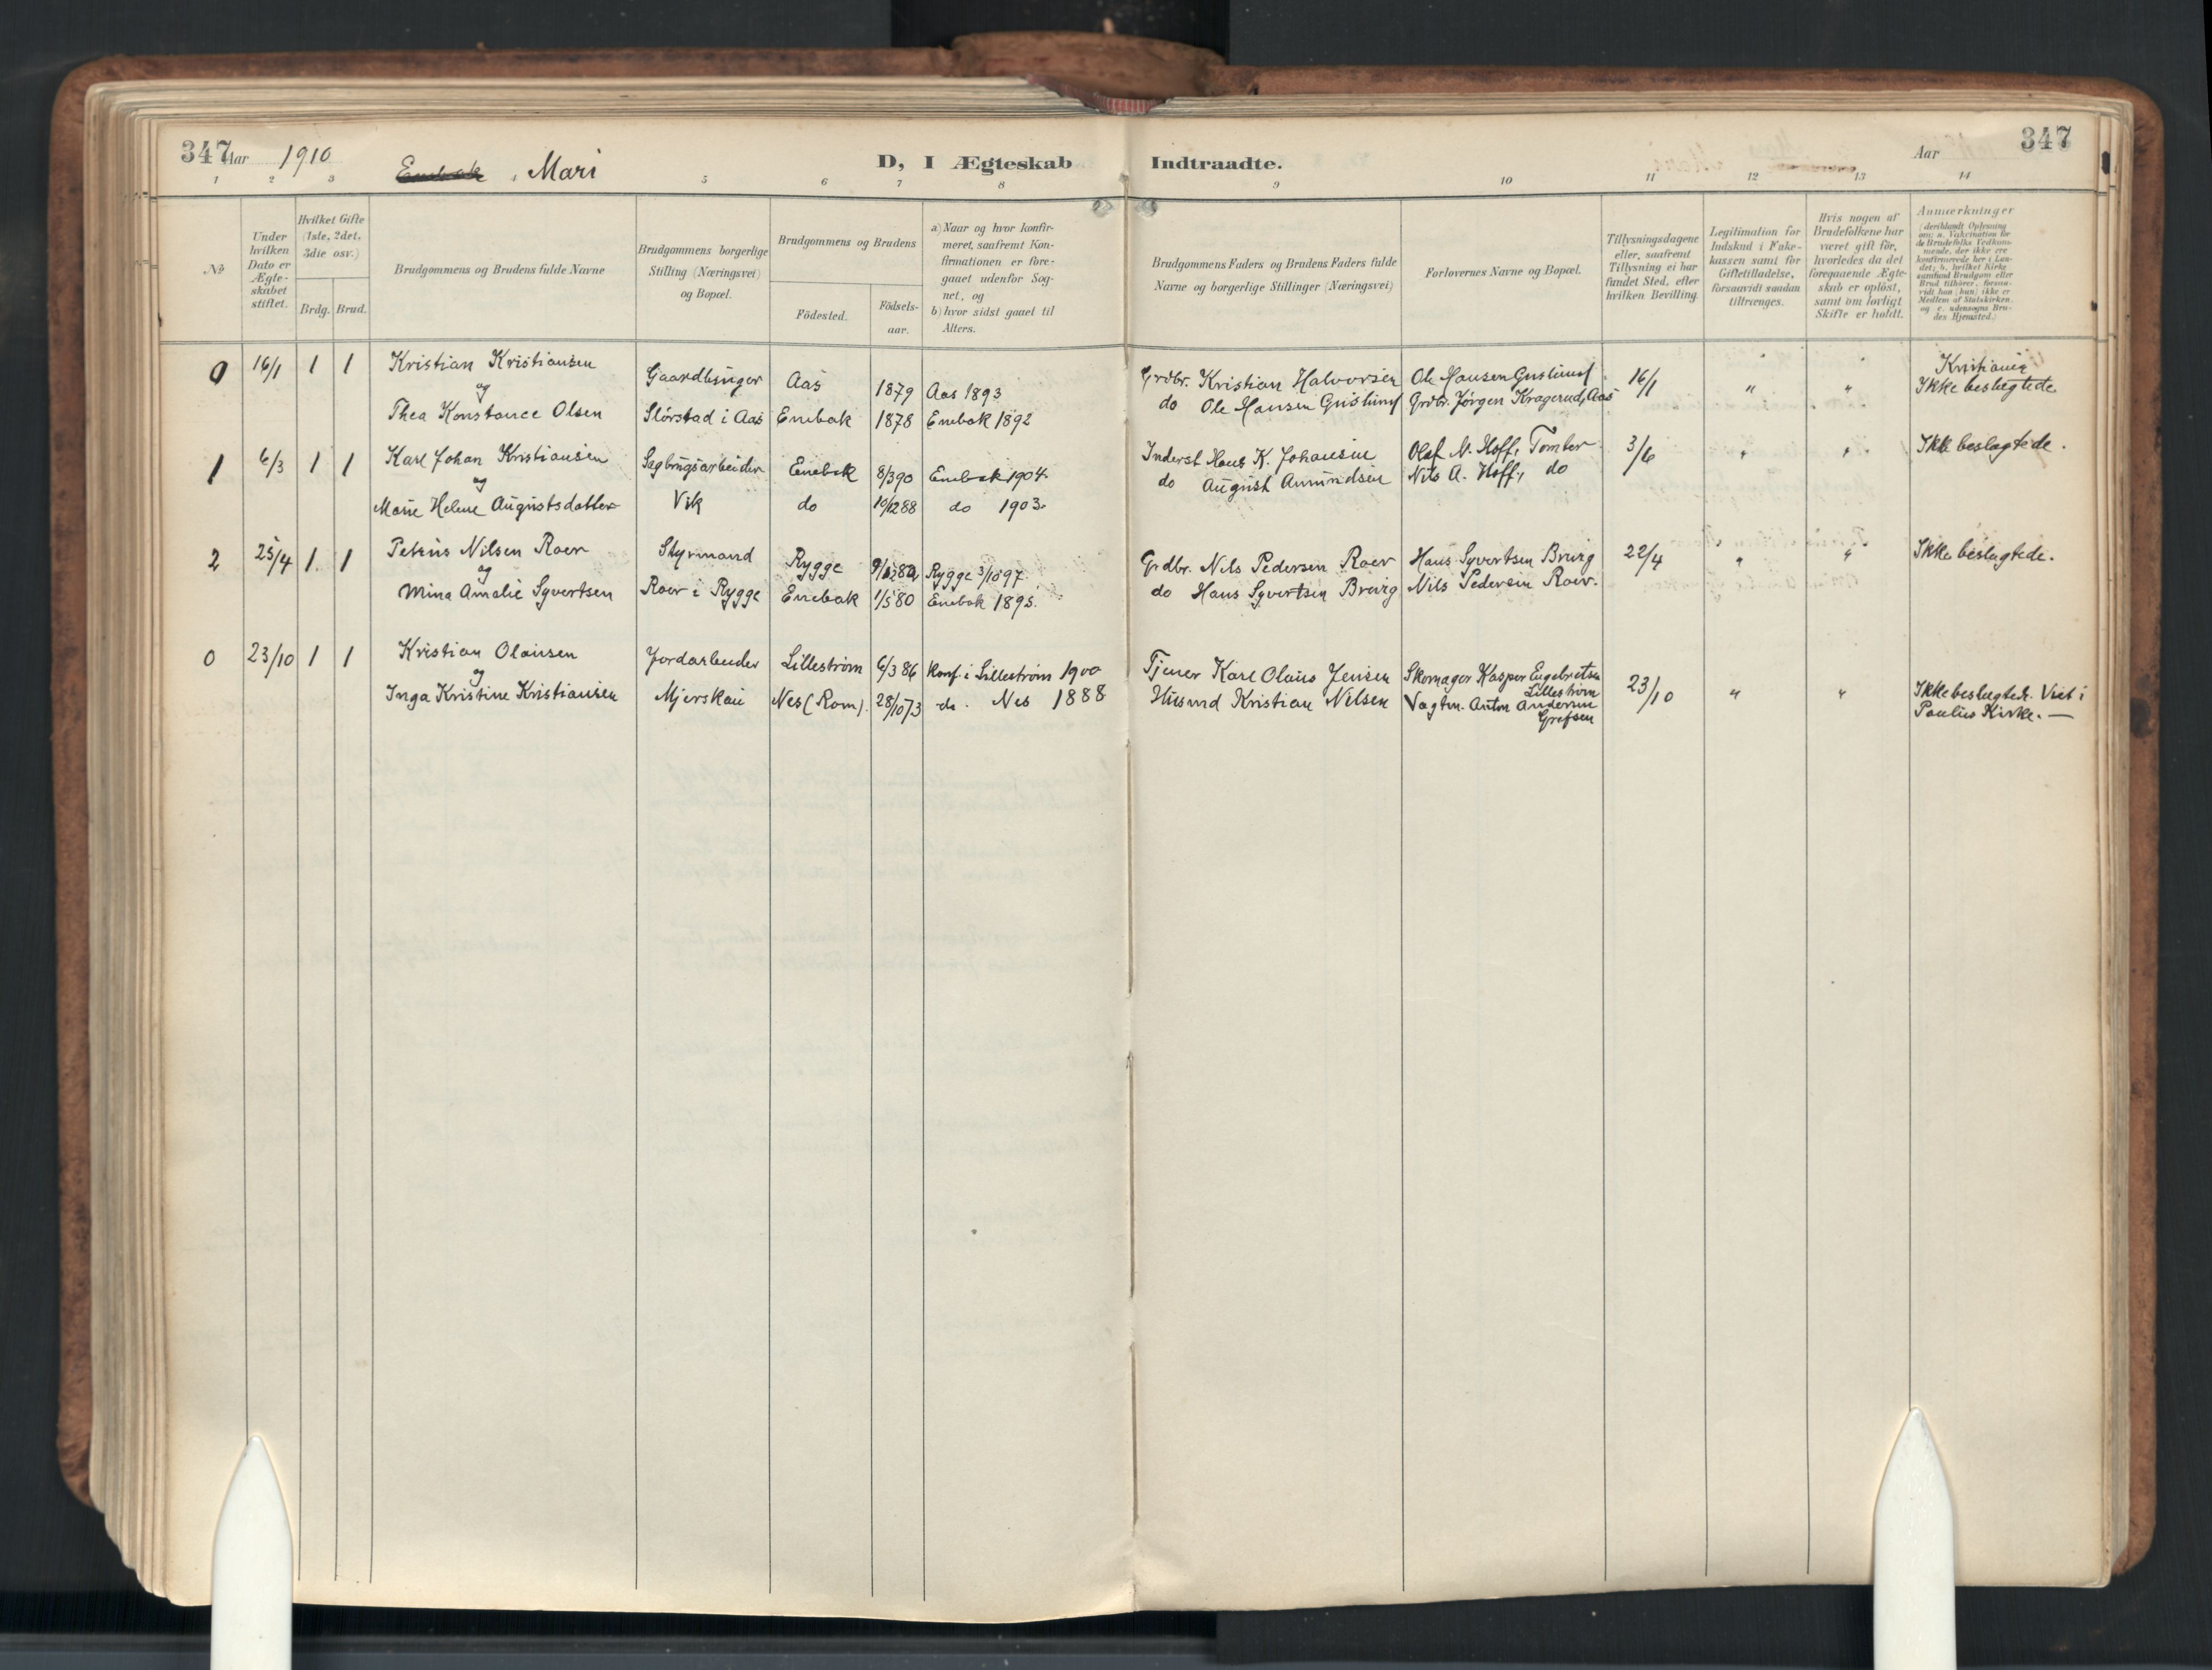 347 Aar 1910 Enebak, Mari D, I Ægteskab Indtraadte. Aar 347
1 2 3 4 5 6 7 8 9 10 11 12 13 14
No
Under hvilken Dato er Ægte-skabet stiftet.
Hvilket Gifte (1ste, 2det, 3die osv.)
Brdg. Brud.
Brudgommens og Brudens fulde Navne
Brudgommens borgerlige Stilling (Næringsvei) og Bopæl.
Brudgommens og Brudens
Födested. Födsels-aar.
a) Naar og hvor konfir-meret, saafremt Kon-firmationen er fore-gaaet udenfor Sog-net, og
b) hvor sidst gaaet til Alters.
Brudgommens Faders og Brudens Faders fulde Navne og borgerlige Stillinger (Næringsvei)
Forlovernes Navne og Bopæl.
Tillysningsdagene eller, saafremt Tillysning ei har fundet Sted, efter hvilken Bevilling.
Legitimation for Indskud i Enke-kassen samt for Giftetilladelse, forsaavidt saadan tiltrænges.
Hvis nogen af Brudefolkene har været gift för, hvorledes da det foregaaende Ægte-skab er oplöst, samt om lovligt Skifte er holdt.
Anmærkninger
0 16/1 1 1 Kristian Kristiansen Gaardbruger Aas 1879 Aas 1893 Grdbr. Kristian Halvorsen Ole Hansen 16/1 " " Kristiania
og Ikke beslægtede
Thea Konstance Olsen Slørstad i Aas Enebak 1878 Enebak 1892 do Ole Hansen Grdbr. Jörgen Kragerud, Aas
1 6/3 1 1 Karl Johan Kristiansen Sagbrugsarbeider Enebak 8/3 90 Enebak 1904. Inderst Hans K. Johansen Olaf N. Hoff, Tomter 3/6 " " Ikke beslægtede.
og
Marie Helene Augustsdatter Vik do 10/12 88 do 1903. do August Amundsen Nils A. Hoff, do
2 25/4 1. 1 Petrus Nilsen Roer Styrmand Rygge Rygge 3/10 97 Grdbr. Nils Pedersen Roer Hans Syvertsen Brevig 22/4 " " Ikke beslægtede.
og
Mina Amalie Syvertsen Roer i Rygge Enebak 1/5 80 Enebak 1895. do Hans Syvertsen Brevig Nils Pedersen Roer.
0 23/10 1 1 Kristian Olausen Jordarbeider Lilleström 6/3 86 konf. i Lilleström 1900 Tjener Karl Olaus Jensen Skomager Kasper Engebretsen Lilleström 23/10 " "
og
Inga Kristine Kristiansen Mjerskau Nes (Rom). 28/10 73 do. Nes 1888 Husmd Kristian Nilsen Vagtm. Anton Andersen Grefsen Ikke beslægtede. Viet i
Paulus Kirke. —